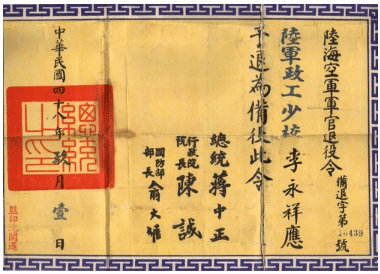 陸海空軍軍官退役令
備退字第10439號
陸軍政工少校李永祥應
予退為備役此令
總統蔣中正
行政院院長陳誠
國防部部長俞大維
中華民國四十八年玖月壹日
總統之印